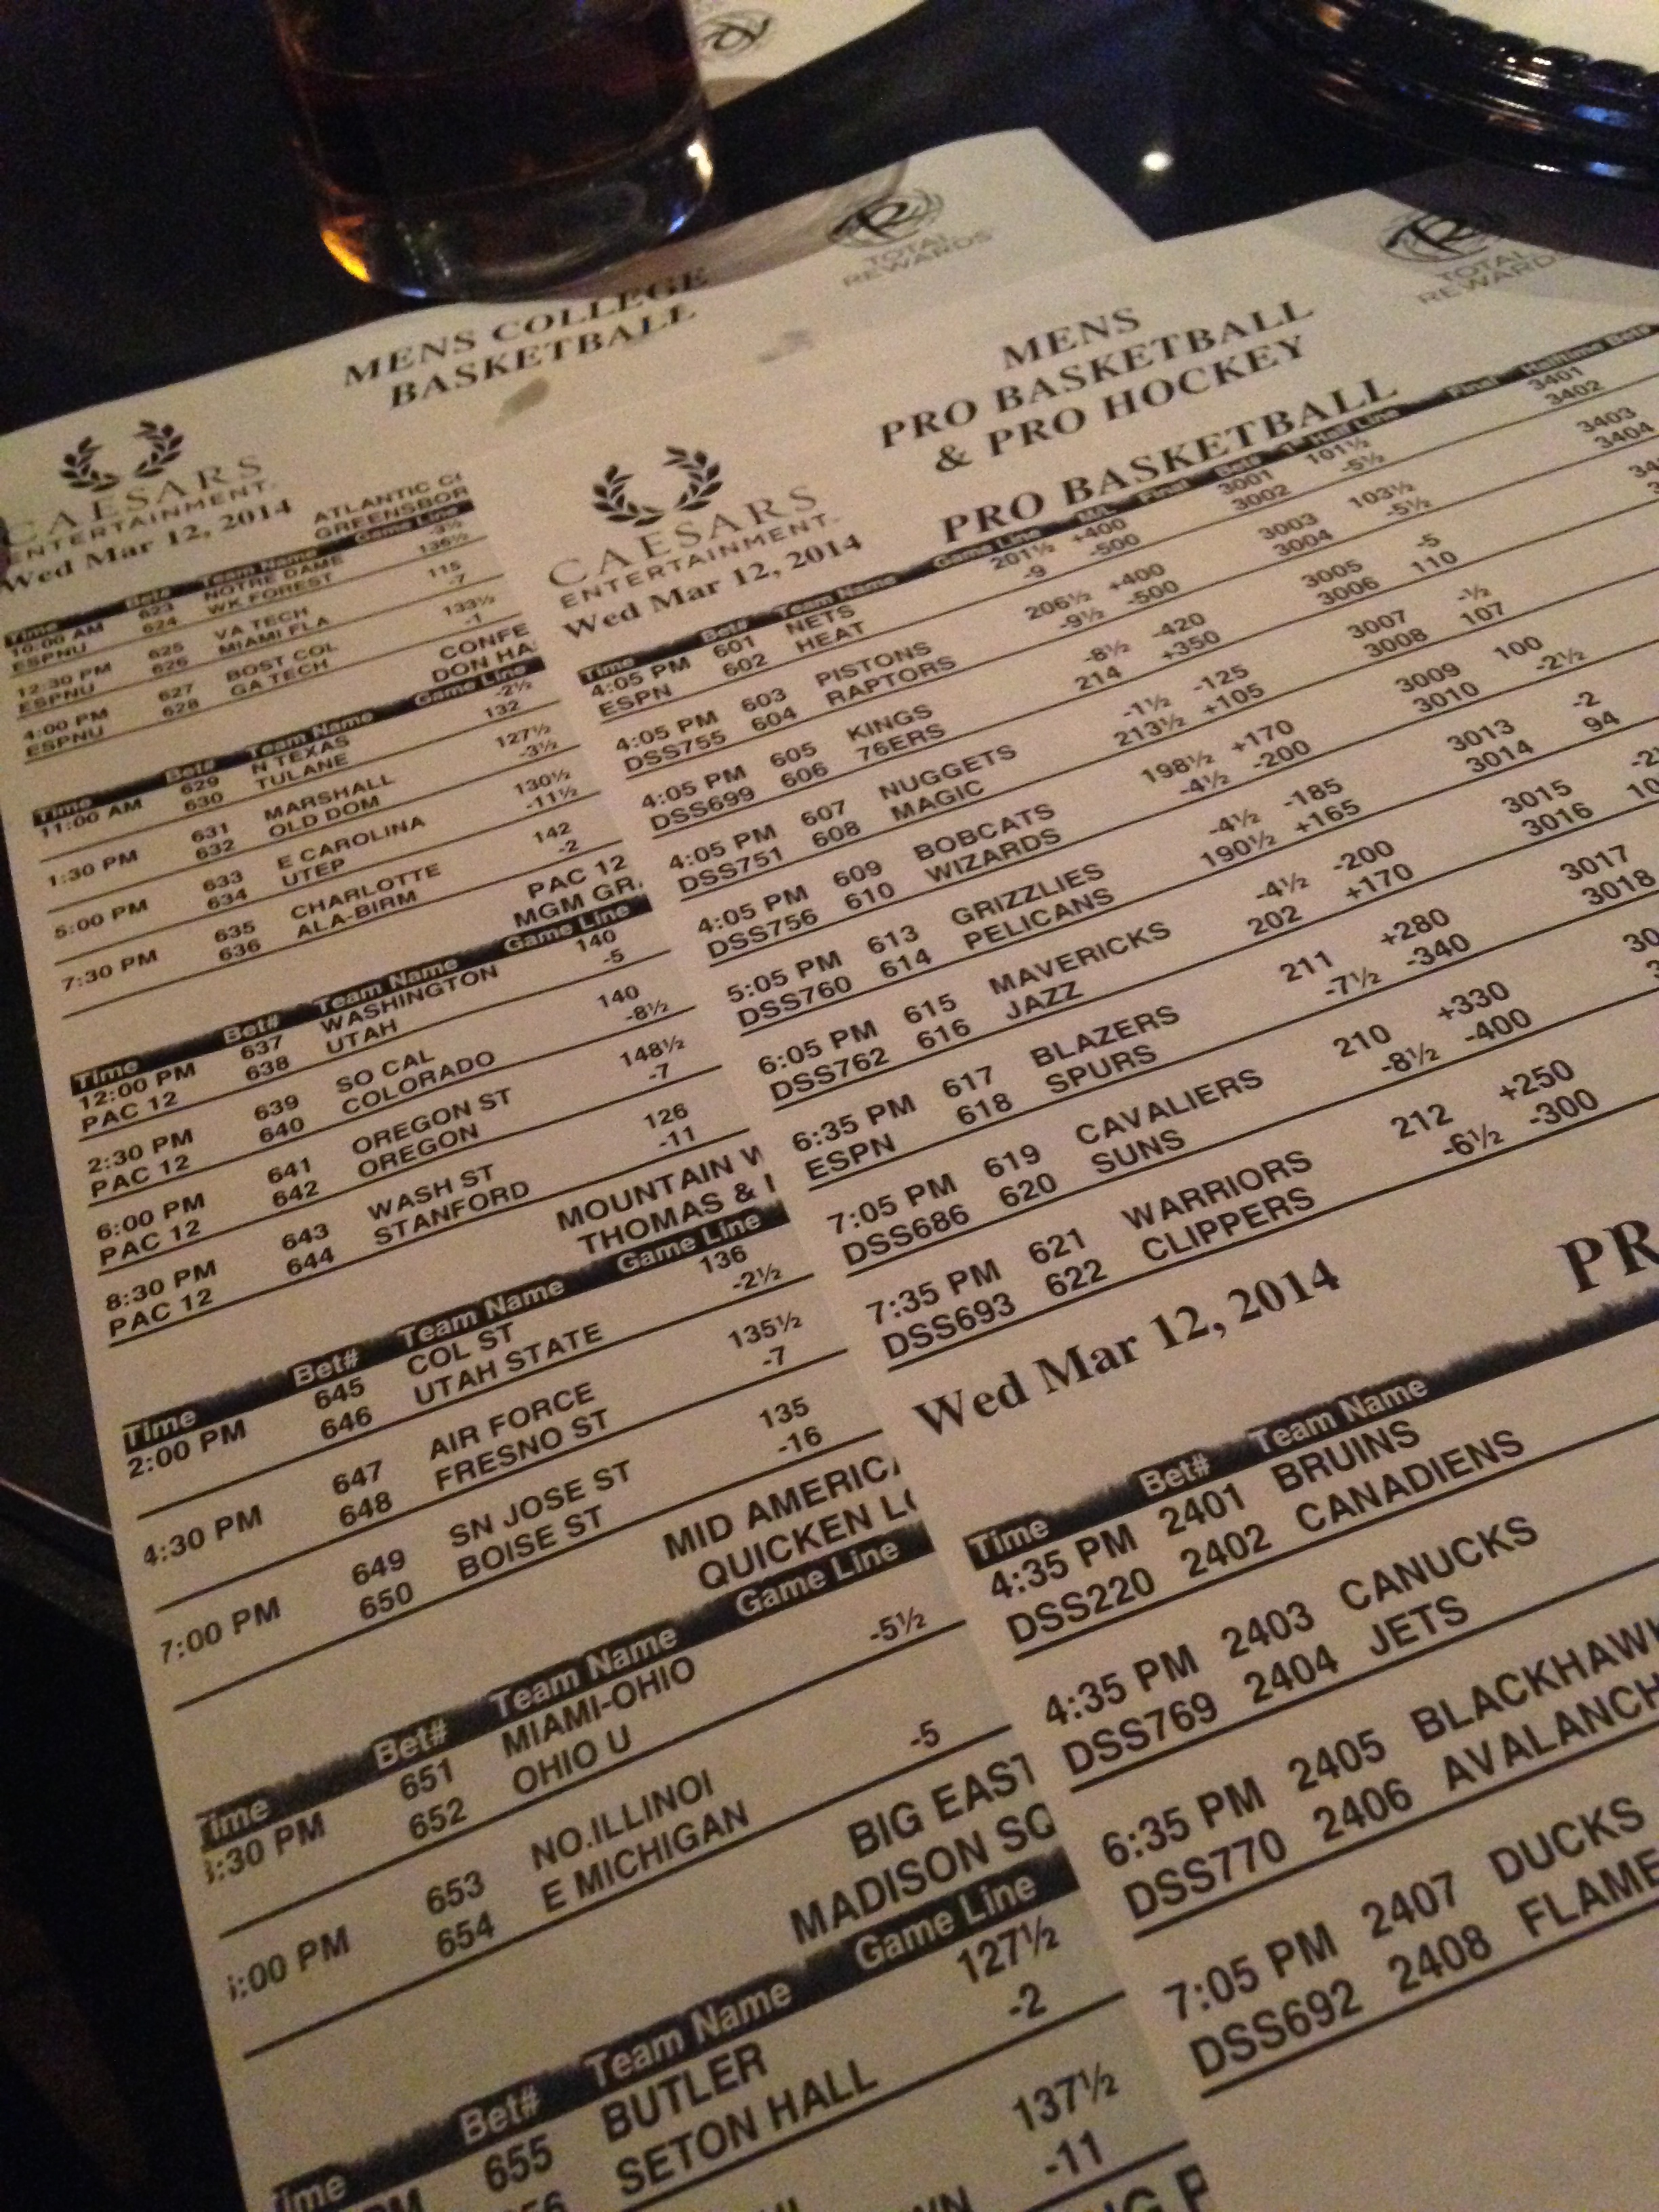 MENS COLLEGE
BASKETBALL
TOTAL
REWARDS
CAESARS
ENTERTAINMENT.
Wed Mar 12, 2014
ATLANTIC
GREENSBOR
Time Bet# Team Name Game Line
10:00 AM 623 NOTRE DAME -3½
ESPNU 624 WK FOREST 136½
12:30 PM 625 VA TECH 115
ESPNU 626 MIAMI FLA -7
4:00 PM 627 BOST COL 133½
ESPNU 628 GA TECH -1
CONFE
DON HA
Time Bet# Team Name Game Line
11:00 AM 629 N TEXAS -2½
630 TULANE 132
1:30 PM 631 MARSHALL 127½
632 OLD DOM -3½
5:00 PM 633 E CAROLINA 130½
634 UTEP -11½
7:30 PM 635 CHARLOTTE 142
636 ALA-BIRM -2
PAC 12
MGM GR
Time Bet# Team Name Game Line
12:00 PM 637 WASHINGTON 140
PAC 12 638 UTAH -5
2:30 PM 639 SO CAL 140
PAC 12 640 COLORADO -8½
6:00 PM 641 OREGON ST 148½
PAC 12 642 OREGON -7
8:30 PM 643 WASH ST 126
PAC 12 644 STANFORD -11
MOUNTAIN W
THOMAS &
Time Bet# Team Name Game Line
2:00 PM 645 COL ST 136
646 UTAH STATE -2½
4:30 PM 647 AIR FORCE 135½
648 FRESNO ST -7
7:00 PM 649 SN JOSE ST 135
650 BOISE ST -16
MID AMERICA
QUICKEN LO
Time Bet# Team Name Game Line
:30 PM 651 MIAMI-OHIO
652 OHIO U -5½
:00 PM 653 NO.ILLINOI
654 E MICHIGAN -5
BIG EAST
MADISON SQ
Time Bet# Team Name Game Line
PM 655 BUTLER 127½
656 SETON HALL -2
137½
-11
TOTAL
REWARDS
MENS
PRO BASKETBALL
& PRO HOCKEY
CAESARS
ENTERTAINMENT.
Wed Mar 12, 2014
PRO BASKETBALL
Time Bet# Team Name Game Line M/L Final Bet# 1st Half Line Final Halftime Bet#
4:05 PM 601 NETS 201½ +400 3001 101½ 3401
ESPN 602 HEAT -9 -500 3002 -5½ 3402
4:05 PM 603 PISTONS 206½ +400 3003 103½ 3403
DSS755 604 RAPTORS -9½ -500 3004 -5½ 3404
4:05 PM 605 KINGS -8½ -420 3005 -5
DSS699 606 76ERS 214 +350 3006 110
4:05 PM 607 NUGGETS -1½ -125 3007 -½
DSS751 608 MAGIC 213½ +105 3008 107
4:05 PM 609 BOBCATS 198½ +170 3009 100
DSS756 610 WIZARDS -4½ -200 3010 -2½
5:05 PM 613 GRIZZLIES -4½ -185 3013 -2
DSS760 614 PELICANS 190½ +165 3014 94
6:05 PM 615 MAVERICKS -4½ -200 3015
DSS762 616 JAZZ 202 +170 3016
6:35 PM 617 BLAZERS 211 +280 3017
ESPN 618 SPURS -7½ -340 3018
7:05 PM 619 CAVALIERS 210 +330
DSS686 620 SUNS -8½ -400
7:35 PM 621 WARRIORS 212 +250
DSS693 622 CLIPPERS -6½ -300
PR
Wed Mar 12, 2014
Time Bet# Team Name
4:35 PM 2401 BRUINS
DSS220 2402 CANADIENS
4:35 PM 2403 CANUCKS
DSS769 2404 JETS
6:35 PM 2405 BLACKHAWK
DSS770 2406 AVALANCH
7:05 PM 2407 DUCKS
DSS692 2408 FLAME